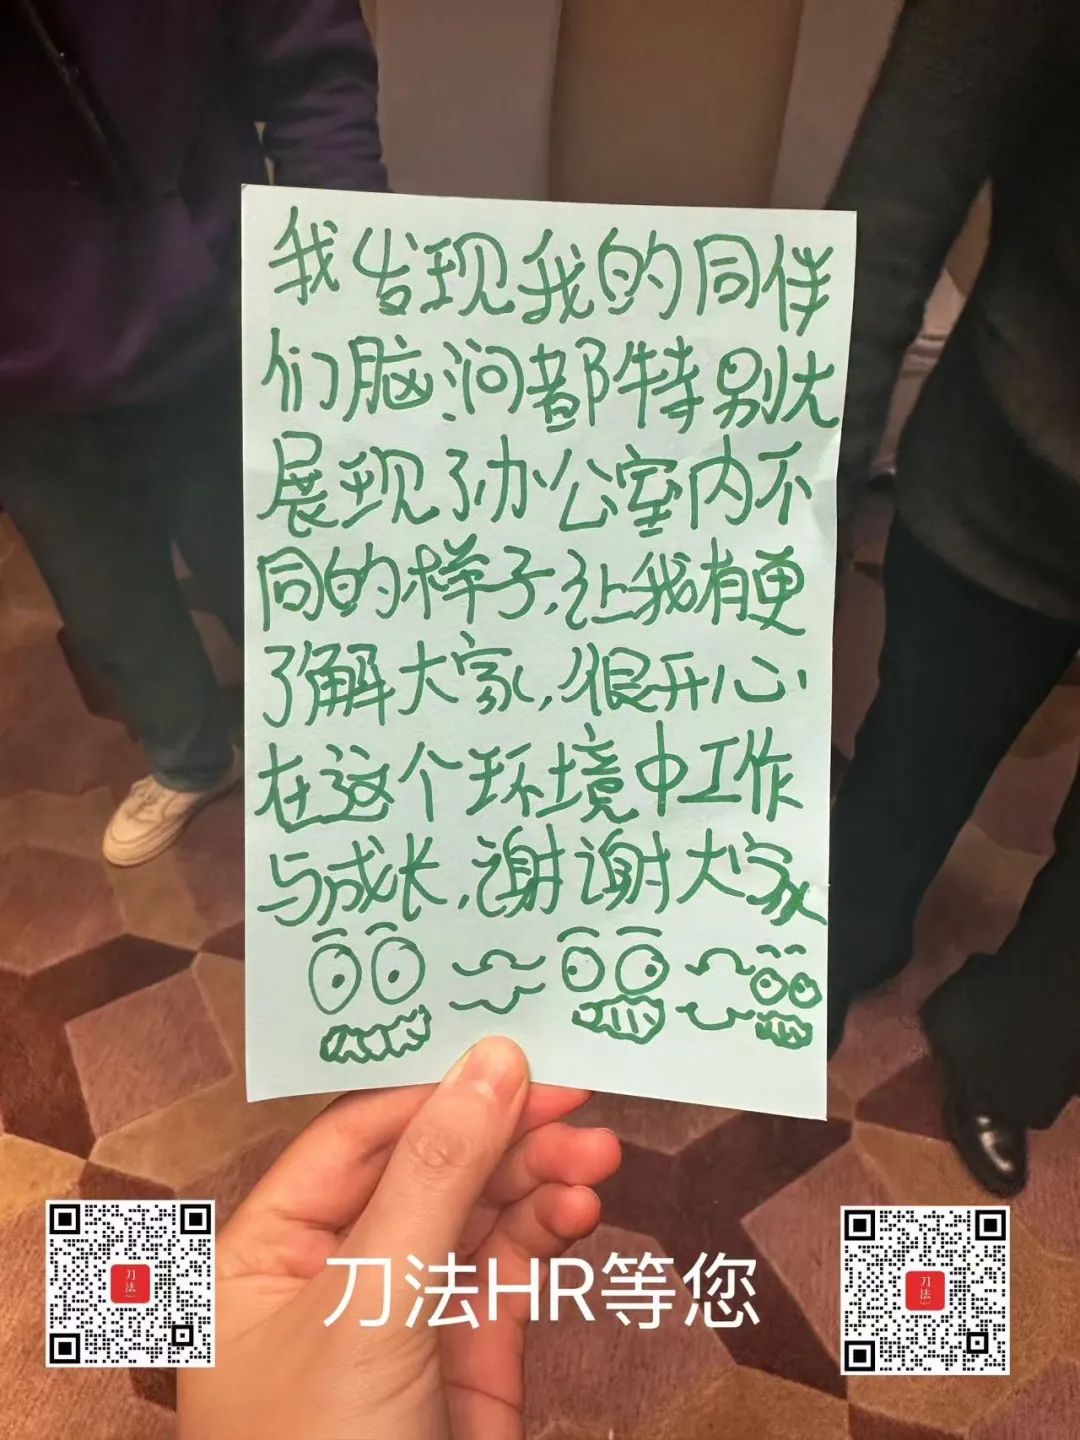 我发现我的同伴
们脑洞都特别大
展现了办公室内不
同的样子,让我有更
了解大家,很开心
在这个环境中工作
与成长,谢谢大家
刀法HR等您
刀法
刀法